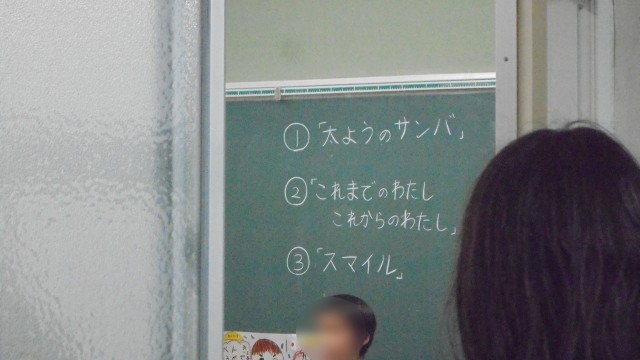 ①「太ようのサンバ」
②「これまでのわたし
これからのわたし」
③「スマイル」